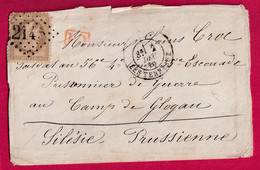 214
PD
Monsieur Croc
Soldat au 36e 4e Escouade
Prisonnier de Guerre
au Camp de Glogau
Silésie Prussienne